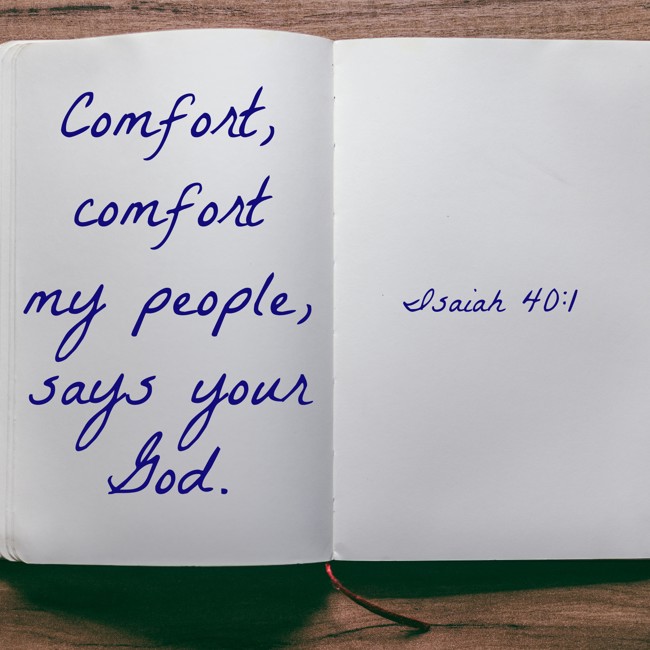 Comfort,
comfort
my people,
says your
God.
Isaiah 40:1